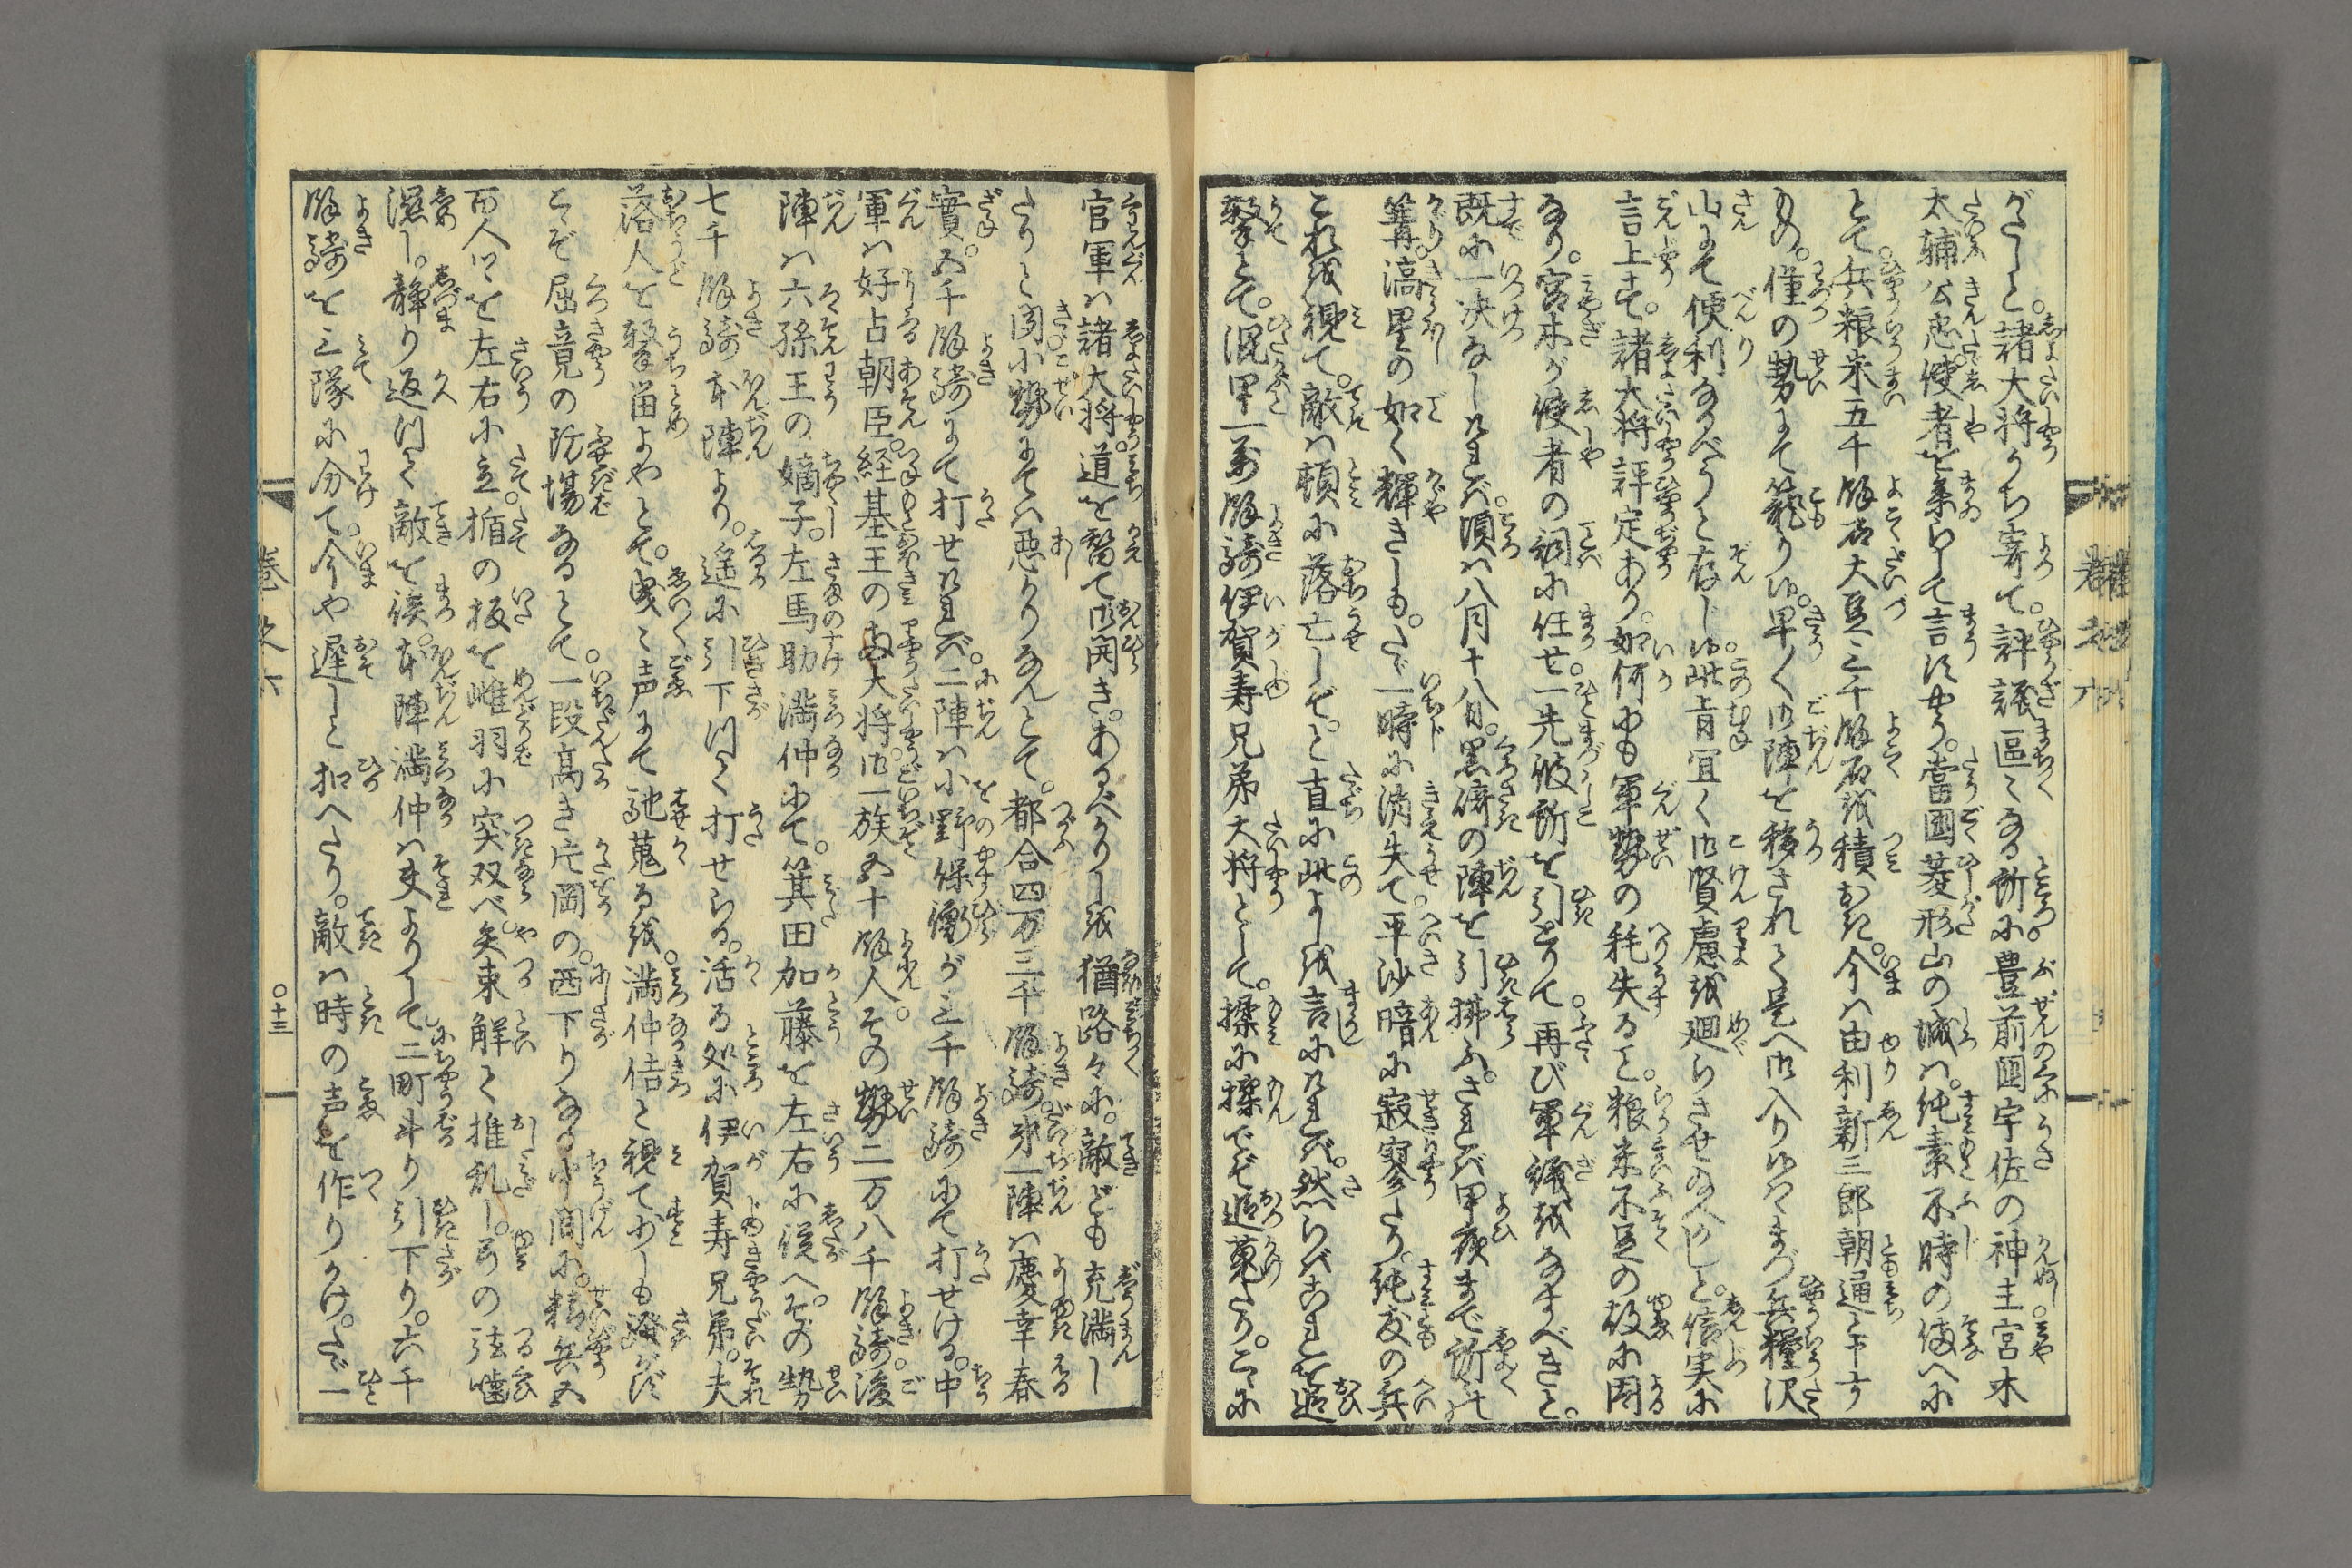 がしと。諸大将うち寄て。評議區〻なる所に。豊前國宇佐の神主宮木
太輔公忠。使者を参らして言けるやう。當國菱形山の城は。純素不時の備へに
とて。兵粮米五千餘石大豆三千餘石を積おき。今は由利新三郎朝通と下す
もの。僅の勢にて籠り候。早く御陣を移されて是へ御入り候はゞまづ兵糧沢
山にて便利なるべうと存じ候。此旨宜く御賢慮を廻らさせ給へかしと。信実に
言上す。諸大将評定あり。如何にも軍勢の耗失るは。粮米不足の故に因
なり。宮木が使者の詞に任せ。一先彼所を引とりて。再び軍議をなすべきと。
既に一決なしければ。頃は八月十八日。黒崎の陣を引拂ふ。されば甲夜まで所せく
篝。満星の如く輝きしも。たゞ一時に消失て。平沙暗に寂寥たり。純友の兵
これを視て。敵は頓に落亡しぞ。と直に此よしを言ふければ。然らばこれを追
撃とて。混甲一万餘騎伊賀寿兄弟大将として。揉に揉でぞ追蒐たり。こゝに
巻之六
官軍は諸大将。道を替て御開き。あるべかりしを猶路々に。敵ども充満し
たりと聞小勢にては悪かりなんとて。都合四万三千餘騎。第一陣は慶幸春
實。五千餘騎にて打せければ。二陣は小野保衡が三千餘騎にて打せける。中
軍は好古朝臣。経基王の両大将。御一族五十餘人。その勢二万八千餘騎。後
陣は六孫王の嫡子。左馬助満仲にて。箕田加藤を左右に従へ。その勢
七千餘騎本陣より。遥に引下つて打せらる。活る処に伊賀寿兄弟。夫
落人を撃留よやとて。曳〻声にて馳蒐るを。満仲佶と視て少しも騒がず
こゝぞ屈竟の防場なるとて。一段高き片岡の。西下りなる中間に。精兵五
百人づゝを左右に立。楯の板を雌羽に突双べ矢束解て推乱し。弓の弦噛
濕し。静り返つて敵を俟。本陣満仲は夫よりして二町斗り引下り。六千
餘騎を三隊に分て。今や遅しと扣へたり。敵は時の声を作りかけ。たゞ一
巻之六
〇十三